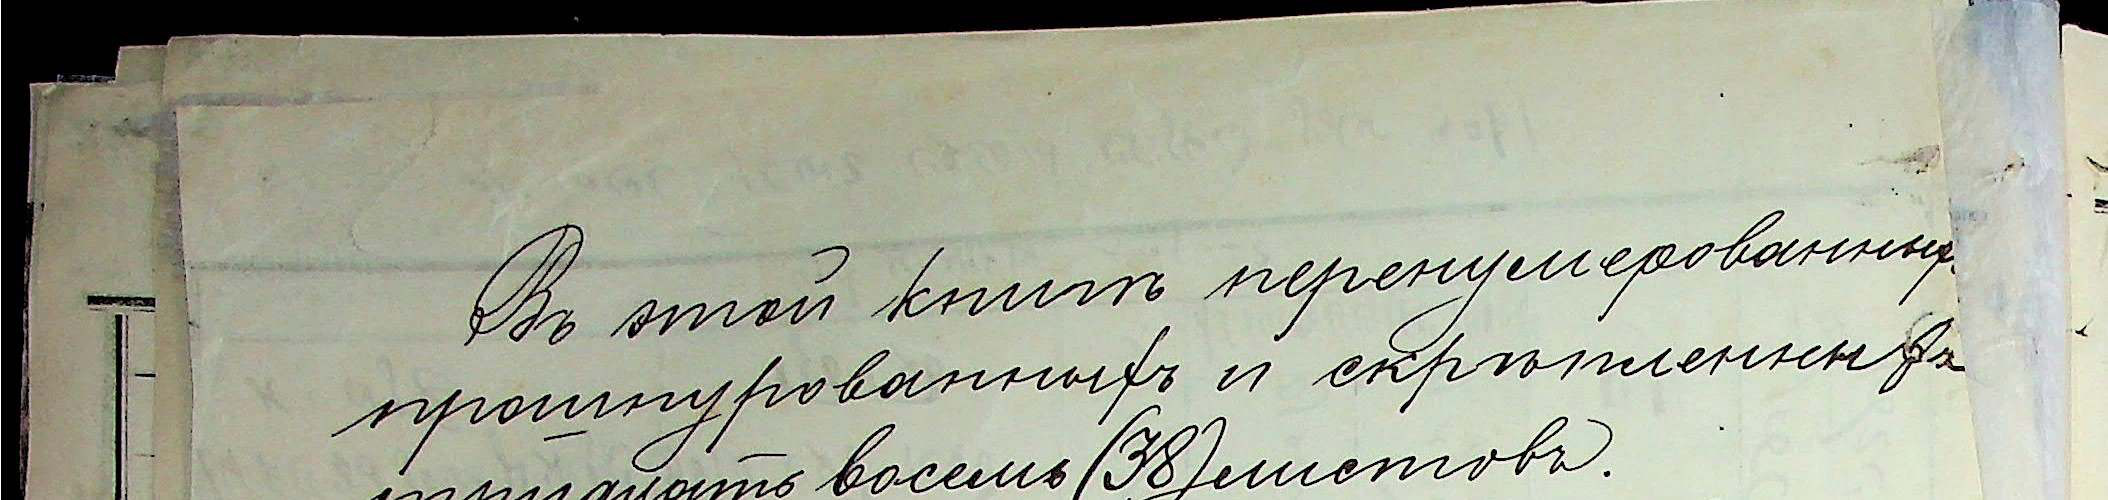 Въ этой книгѣ перенумерованныхъ
прошнурованныхъ и скрѣпленныхъ
тридцать восемь (38) листовъ.